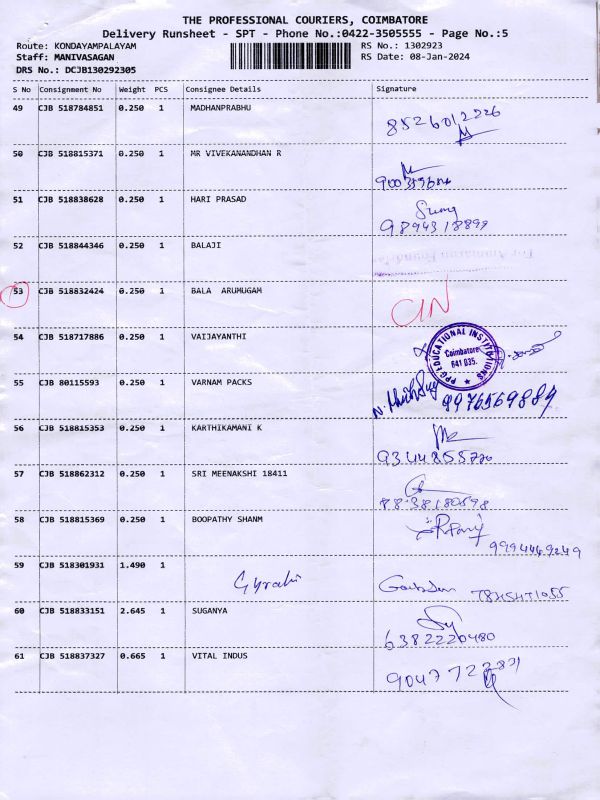 THE PROFESSIONAL COURIERS, COIMBATORE
Delivery Runsheet - SPT - Phone No.:0422-3505555 - Page No.:5
Route: KONDAYAMPALAYAM RS No.: 1302923
Staff: MANIVASAGAN RS Date: 08-Jan-2024
DRS No.: DCJB130292305
S No Consignment No Weight PCS Consignee Details Signature
49 CJB 518784851 0.250 1 MADHANPRABHU
8526012226
50 CJB 518815371 0.250 1 MR VIVEKANANDHAN R
51 CJB 518838628 0.250 1 HARI PRASAD
9894318899
52 CJB 518844346 0.250 1 BALAJI
53 CJB 518832424 0.250 1 BALA ARUMUGAM
54 CJB 518717886 0.250 1 VAIJAYANTHI
PPG EDUCATIONAL INSTITUTIONS
Coimbatore
641 035.
55 CJB 80115593 0.250 1 VARNAM PACKS
9976569889
56 CJB 518815353 0.250 1 KARTHIKAMANI K
57 CJB 518862312 0.250 1 SRI MEENAKSHI 18411
8838180598
58 CJB 518815369 0.250 1 BOOPATHY SHANM
9994449249
59 CJB 518301931 1.490 1
60 CJB 518833151 2.645 1 SUGANYA
6382220480
61 CJB 518837327 0.665 1 VITAL INDUS